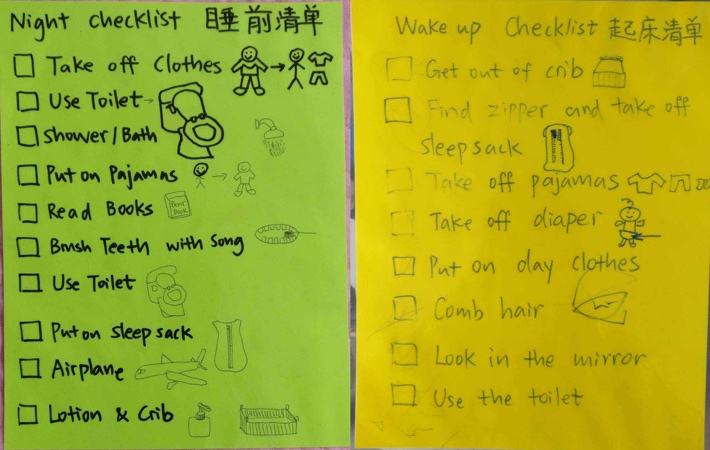 Night checklist 睡前清单
Take off Clothes
Use Toilet
Shower/Bath
Put on Pajamas
Read Books
Brush Teeth with Song
Use Toilet
Put on sleep sack
Airplane
Lotion & Crib
Wake up Checklist 起床清单
Get out of crib
Find zipper and take off
sleep sack
Take off pajamas
Take off diaper
Put on day clothes
Comb hair
Look in the mirror
Use the toilet